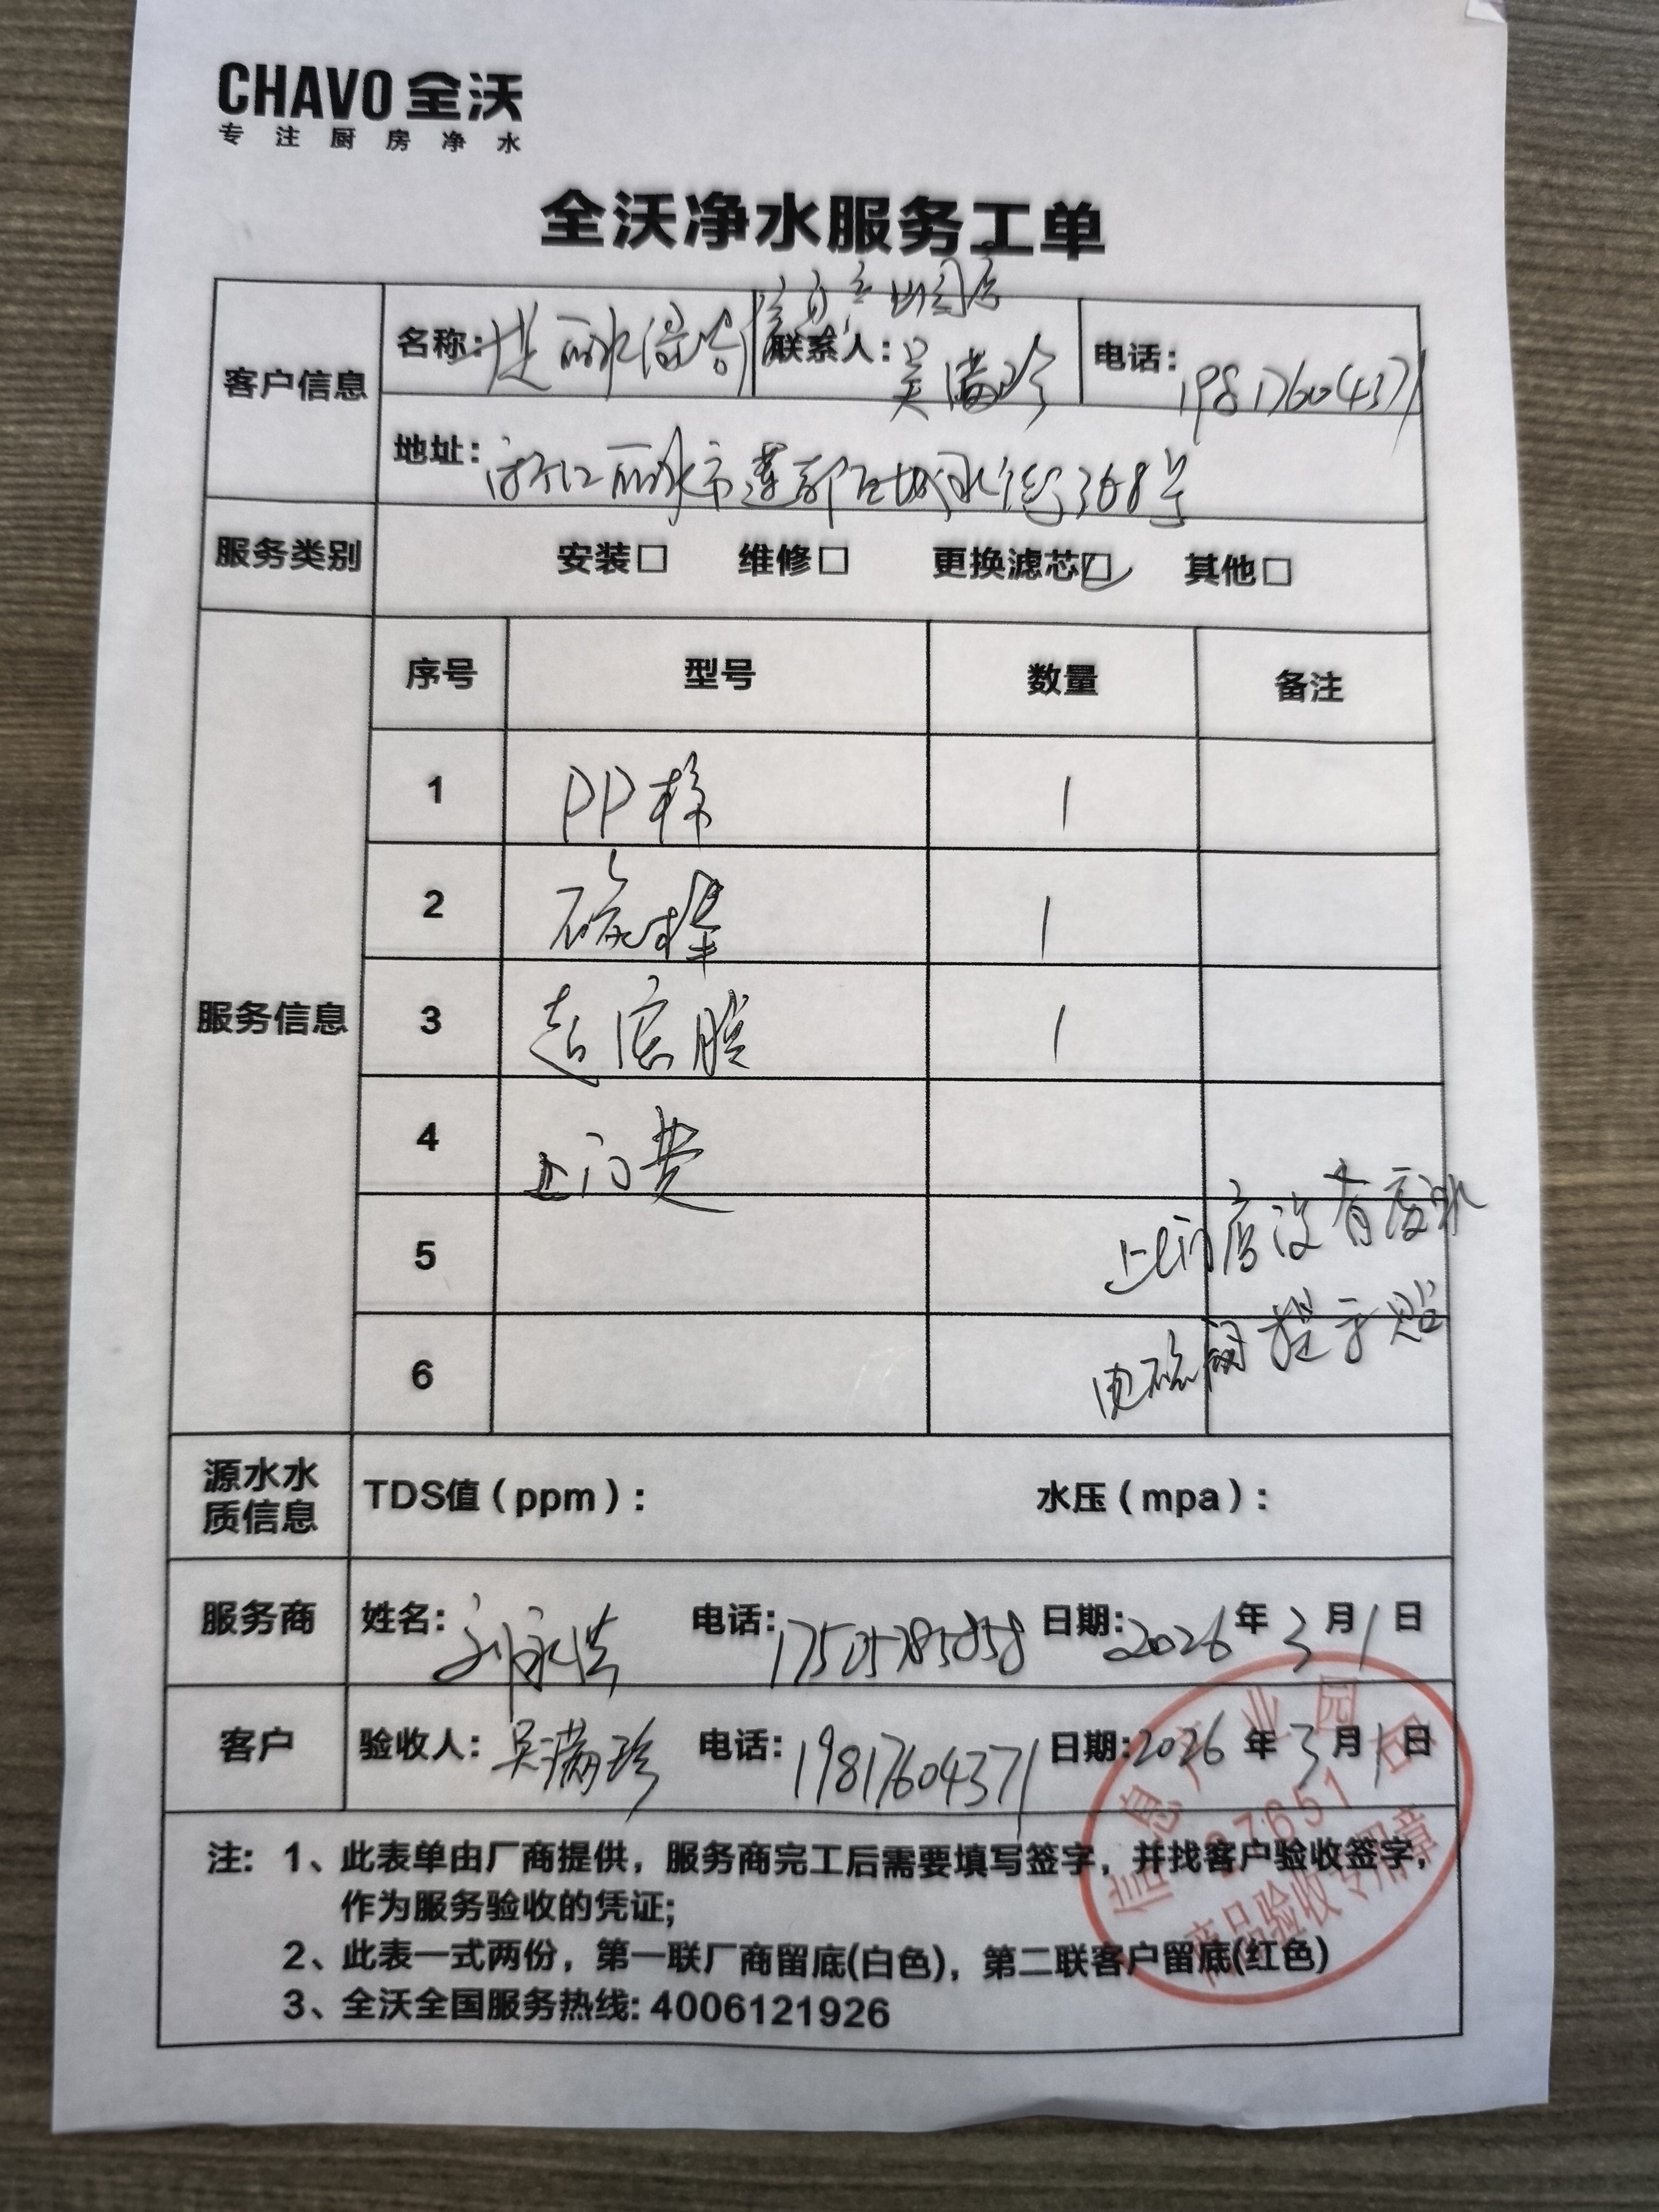 CHAVO 全沃
专注厨房净水
全沃净水服务工单
客户信息
名称: 丽水 信息产业园店
联系人: 吴满珍
电话: 19817604371
地址: 浙江丽水市莲都区 街368号
服务类别 安装□ 维修□ 更换滤芯☑ 其他□
服务信息
序号 型号 数量 备注
1 PP棉 1
2 碳棒 1
3 超滤膜 1
4 上门费
5 门店没有废水
6 电磁阀 提示贴
源水水质信息 TDS值(ppm): 水压(mpa):
服务商 姓名: 刘永 电话: 17505785858 日期: 2026年3月1日
客户 验收人: 吴满珍 电话: 19817604371 日期: 2026年3月1日
注: 1、此表单由厂商提供，服务商完工后需要填写签字，并找客户验收签字，
作为服务验收的凭证;
2、此表一式两份，第一联厂商留底(白色)，第二联客户留底(红色)
3、全沃全国服务热线: 4006121926
信息产业园店
27651
商品验收专用章